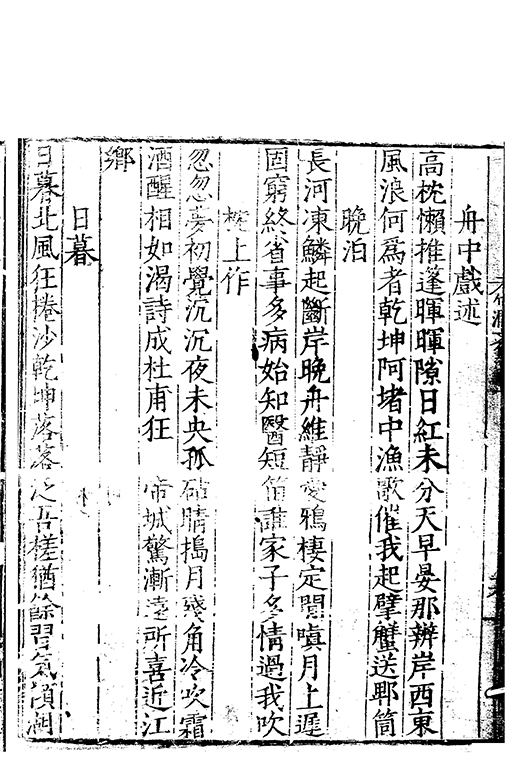 舟中戲述
高枕懶推蓬暉暉隙日紅未分天早晏那辦岸西東
風浪何爲者乾坤阿堵中漁歌催我起擘蟹送郫筒
晚泊
長河凍鱗起斷岸晚舟維靜愛鴉棲定閒嗔月上遲
固窮終省事多病始知醫短笛誰家子多情過我吹
枕上作
忽忽夢初覺沉沉夜未央孤砧晴搗月殘角冷吹霜
酒醒相如渴詩成杜甫狂帝城驚漸遠所喜近江
鄉
日暮
日暮北風狂捲沙乾坤落落泛吾槎猶餘習氣湖